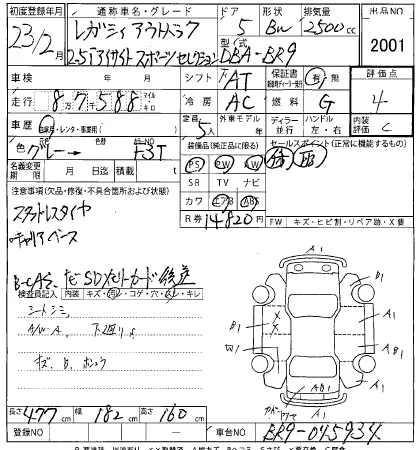 初度登録年月 通称車名・グレード ドア 形状 排気量 出品NO
23/2月 レガシィアウトバック 5 BW 2500cc 2001
2.5iアイサイト スポーツセレクション 型式 DBA-BR9
車検 年 月 日 シフト AT 保証書 有 無 評価点
走行 87588 マイル キロ 冷房 AC 燃料 G 4
車歴 自家用・レンタ・事業用( ) 定員 5人 外車モデル 年 ディーラー 並行 ハンドル 左・右 内装評価 C
色 グレー→ 色替 カラーNO 装備品(純正品に限る) セールスポイント(正常に機能するもの)
名義変更期限 月 日 積載 t PS PW AW
注意事項(欠品・修復・不具合箇所および状態) SR TV ナビ
スタッドレスタイヤ カワ エアB ABS
キャリアベース R券 14820円 FW キズ・ヒビ割・リペア跡・X要
B-CAS、ナビSDメモリーカード後送
検査員記入 内装 キズ・汚レ・コゲ・穴・スレ・キレ
シートシミ
A/W・A、下廻りサ
A1
B1
A1
B1
W1
A1
AB1
A1
長さ 477cm 幅 182cm 高さ 160cm
登録NO 車台NO BR9-045934